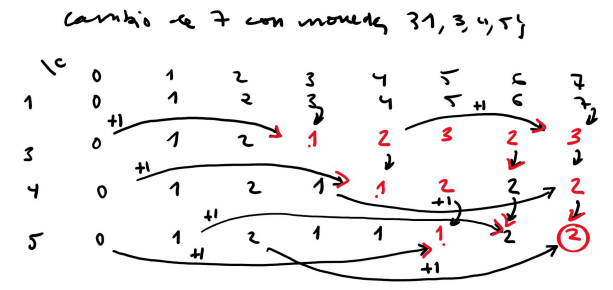 cambio de 7 con monedas {1, 3, 4, 5}
\c 0 1 2 3 4 5 6 7
1 0 1 2 3 4 5 6 7
+1 +1
3 0 1 2 1 2 3 2 3
+1
4 0 1 2 1 1 2 2 2
+1 +1
5 0 1 2 1 1 1 2 2
+1 +1